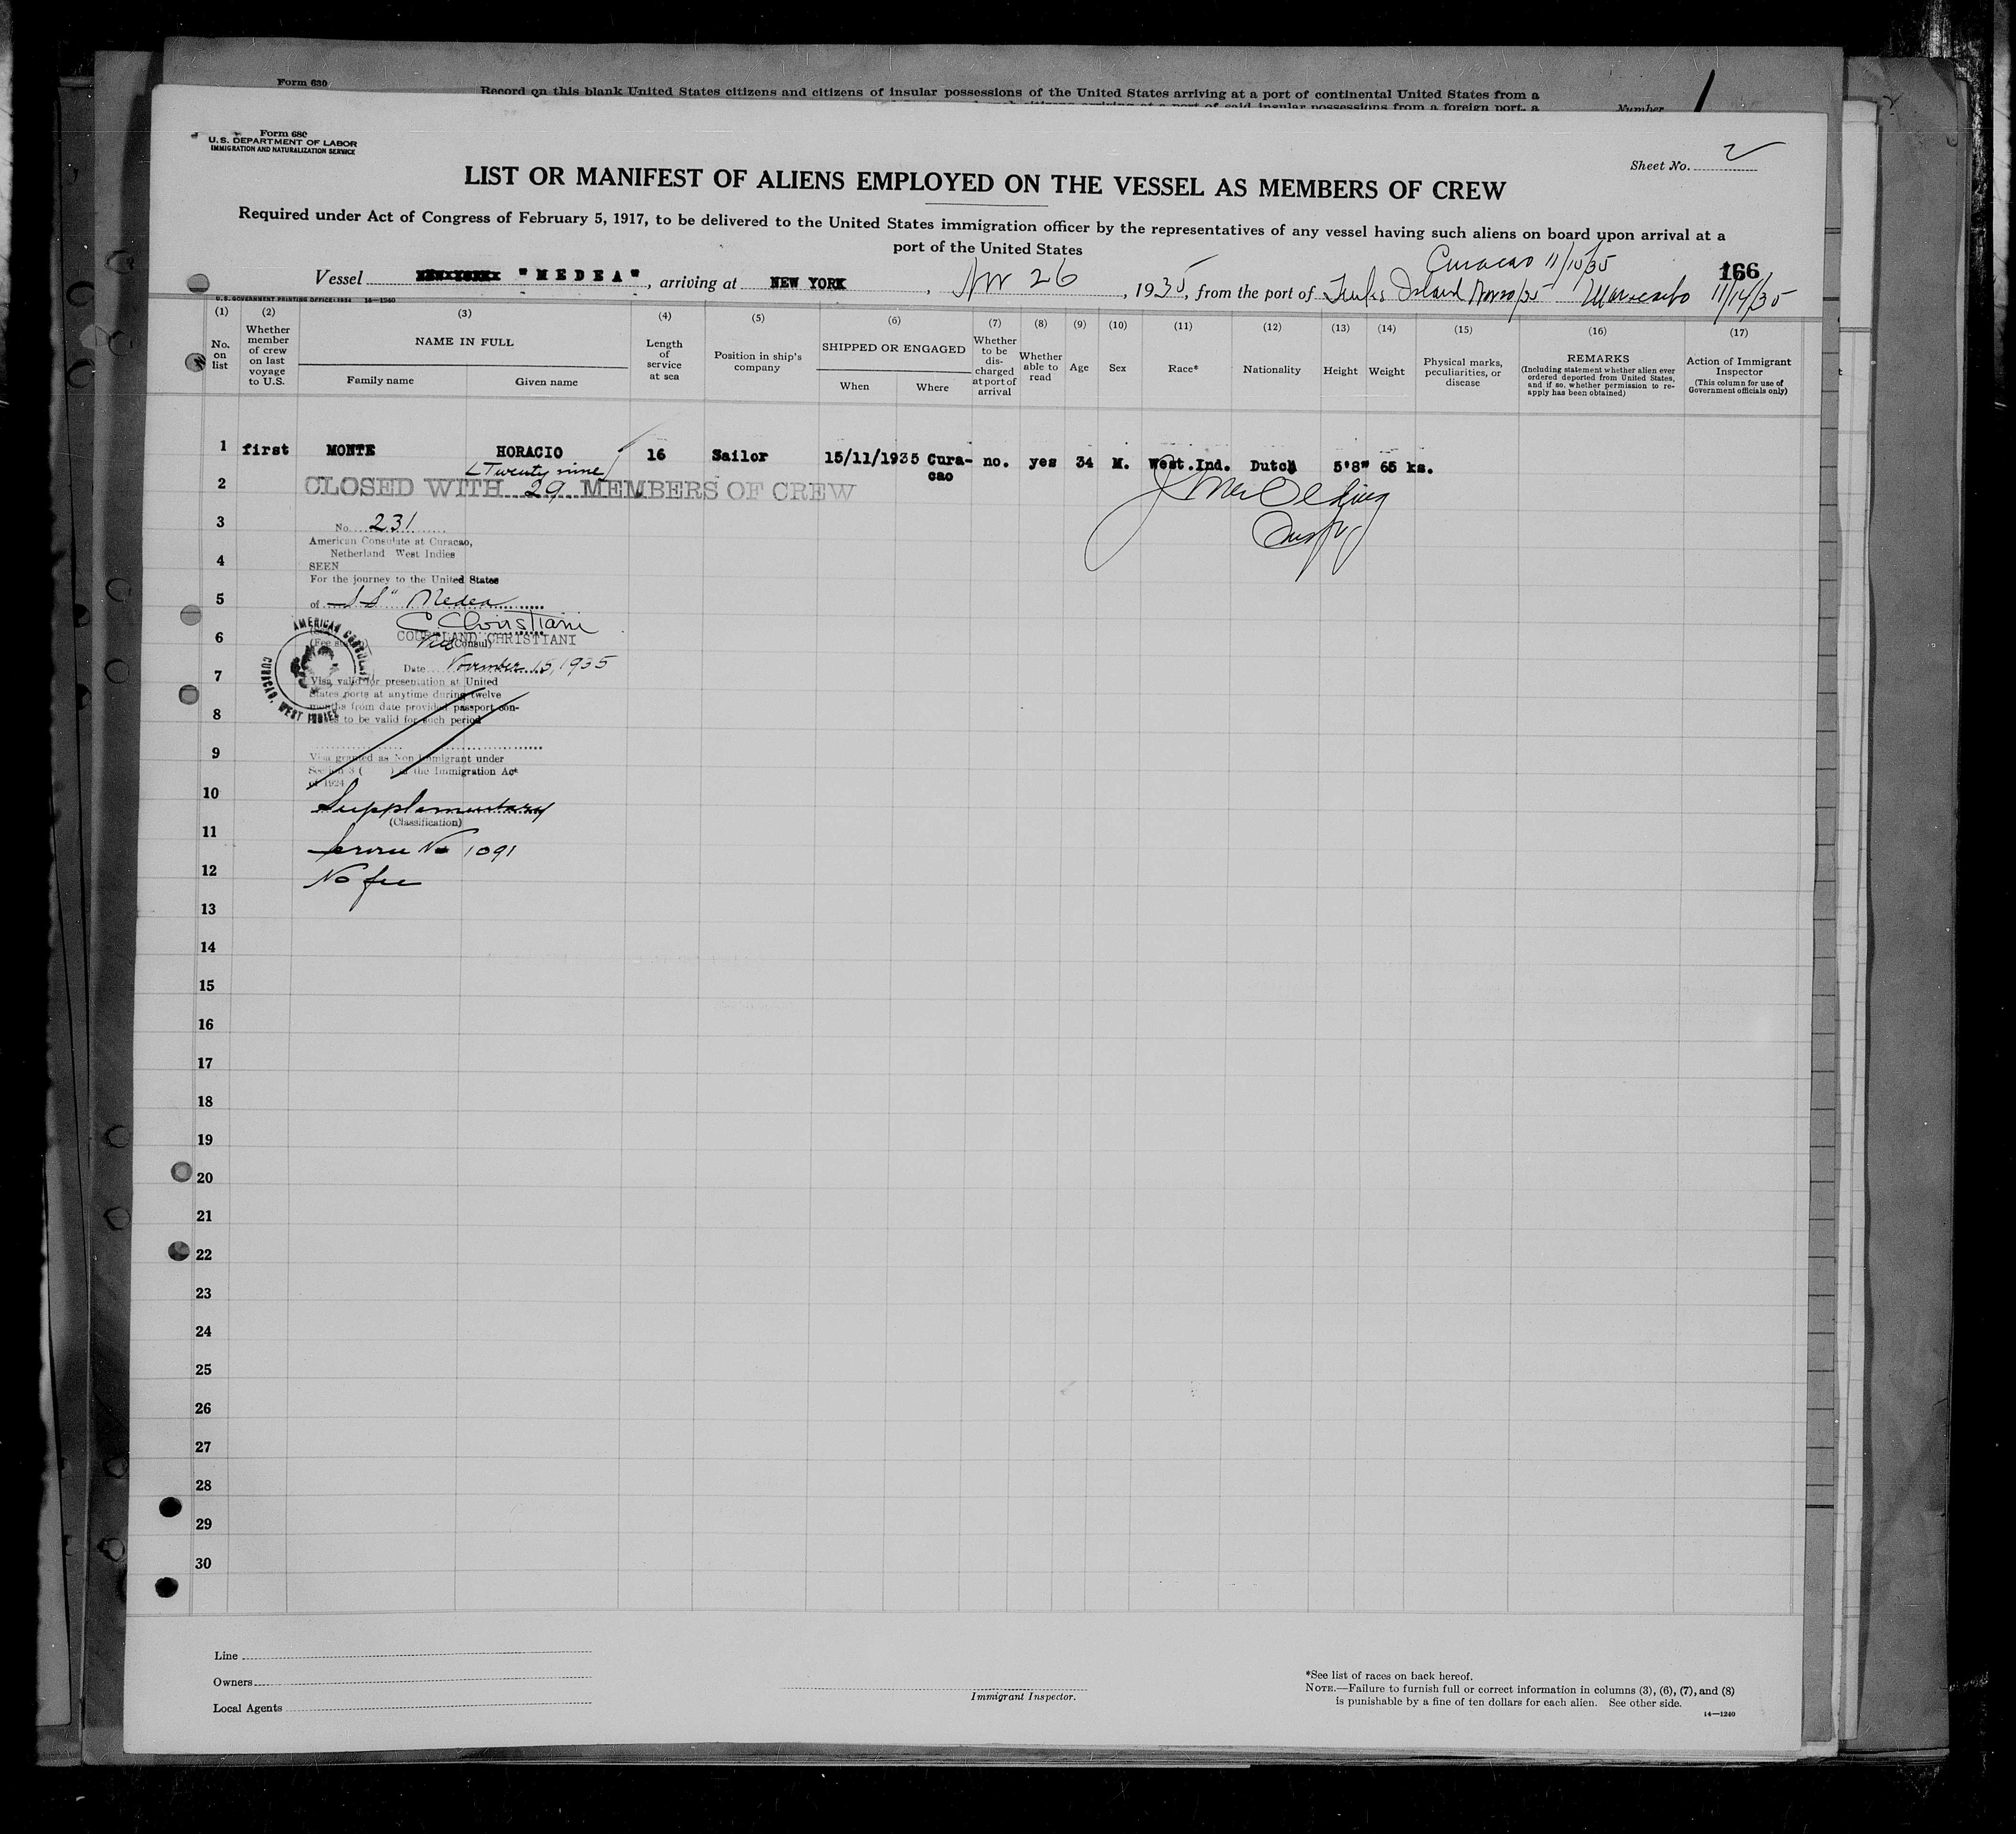 Form 630
Record on this blank United States citizens and citizens of insular possessions of the United States arriving at a port of continental United States from a
Number 1
Form 680
U. S. DEPARTMENT OF LABOR
IMMIGRATION AND NATURALIZATION SERVICE
Sheet No. 2
LIST OR MANIFEST OF ALIENS EMPLOYED ON THE VESSEL AS MEMBERS OF CREW
Required under Act of Congress of February 5, 1917, to be delivered to the United States immigration officer by the representatives of any vessel having such aliens on board upon arrival at a
port of the United States
Curacao 11/15/35
166
Vessel "MEDEA", arriving at NEW YORK, Nov 26, 1935, from the port of Turks Island Nov 20/35 Maracaibo 11/14/35
U. S. GOVERNMENT PRINTING OFFICE: 1934 14—1240
(1) No. on list
(2) Whether member of crew on last voyage to U.S.
(3) NAME IN FULL
Family name
Given name
(4) Length of service at sea
(5) Position in ship's company
(6) SHIPPED OR ENGAGED
When
Where
(7) Whether to be discharged at port of arrival
(8) Whether able to read
(9) Age
(10) Sex
(11) Race*
(12) Nationality
(13) Height
(14) Weight
(15) Physical marks, peculiarities, or disease
(16) REMARKS
(Including statement whether alien ever ordered deported from United States, and if so, whether permission to reapply has been obtained)
(17) Action of Immigrant Inspector
(This column for use of Government officials only)
1 first MONTE HORACIO 16 Sailor 15/11/1935 Cura-cao no. yes 34 M. West.Ind. Dutch 5'8" 65 ks.
(Twenty nine)
2 CLOSED WITH 29 MEMBERS OF CREW
3
No. 231
American Consulate at Curacao,
Netherland West Indies
4
SEEN
For the journey to the United States
5
of SS "Medea"
C Christiani
6
COURTLAND CHRISTIANI
Vice (Consul)
AMERICAN CONSULATE
CURACAO, WEST INDIES
Date November 15, 1935
7
Visa valid for presentation at United
States ports at anytime during twelve
months from date provided passport con-
8
tinues to be valid for such period
9
Visa granted as Non Immigrant under
Section 3 ( ) of the Immigration Act
of 1924
10
Supplementary
(Classification)
11
Service No 1091
12
No fee
13
14
15
16
17
18
19
20
21
22
23
24
25
26
27
28
29
30
Line
Owners
Local Agents
Immigrant Inspector.
*See list of races on back hereof.
NOTE.—Failure to furnish full or correct information in columns (3), (6), (7), and (8)
is punishable by a fine of ten dollars for each alien. See other side.
14—1240